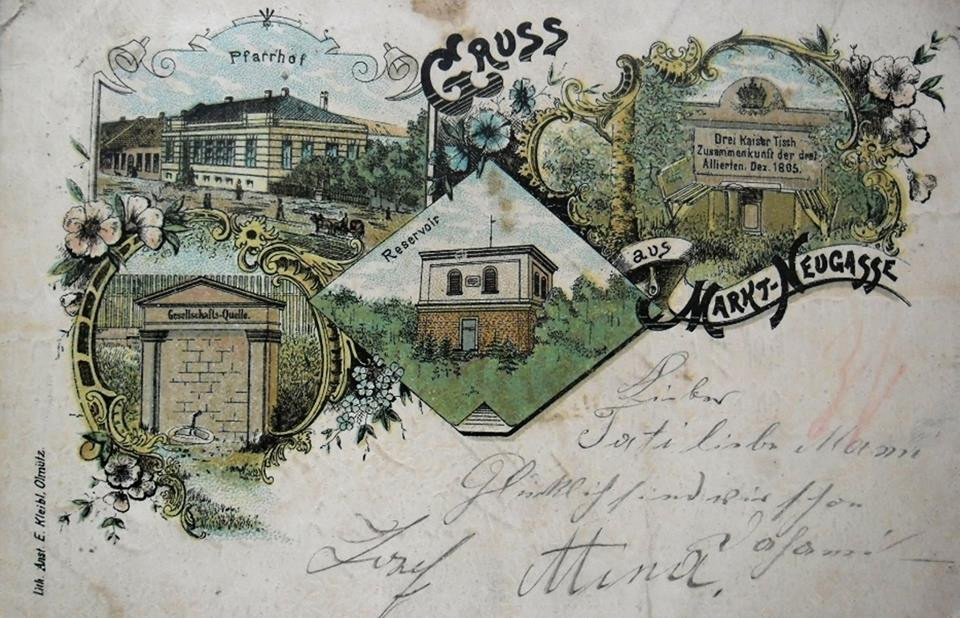 Pfarrhof
GRUSS
Drei Kaiser Tisch
Zusammenkunft der drei
Allierten. Dez. 1805.
Reservoir
aus
MARKT-NEUGASSE
Gesellschafts-Quelle.
Lieber
Tati liebe Mami
Glücklich sind wir schon
Josef Mina.
Lith. Anst. E. Kleibl, Olmütz.